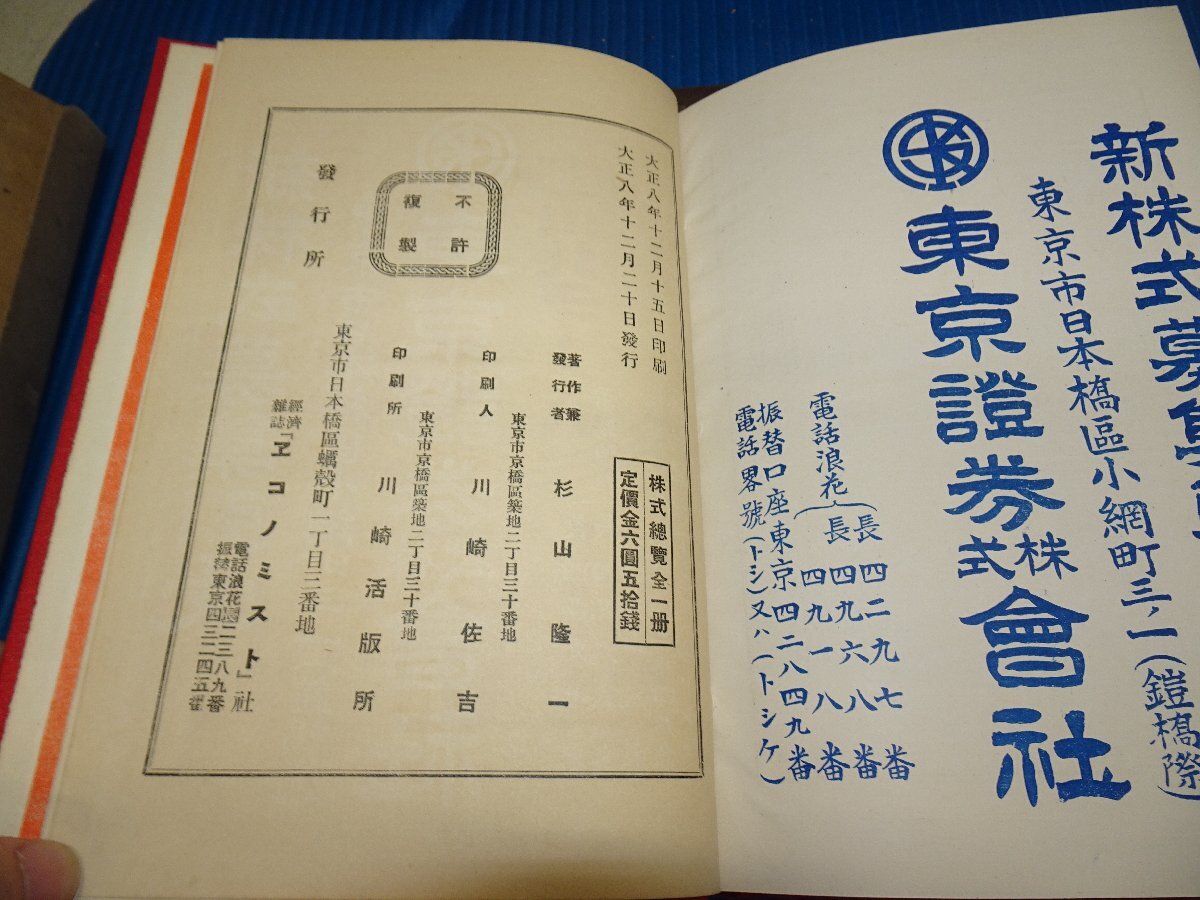 東京市日本橋區小網町三ノ一(鎧橋際)
東京證券株式會社
電話浪花
長四二九七番
長四九六八番
四九一八番
振替口座東京四二八四九番
電話畧號(トシ)又ハ(トシケ)
大正八年十二月十五日印刷
大正八年十二月二十日發行
株式總覽全一册
定價金六圓五拾錢
不許
複製
著作兼
發行者 杉山隆一
東京市京橋區築地二丁目三十番地
印刷人 川崎佐吉
東京市京橋區築地二丁目三十番地
印刷所 川崎活版所
東京市日本橋區蠣殼町一丁目三番地
發行所
經濟
雜誌
『エコノミスト』社
電話浪花二三八九番
振替東京四三二四五番